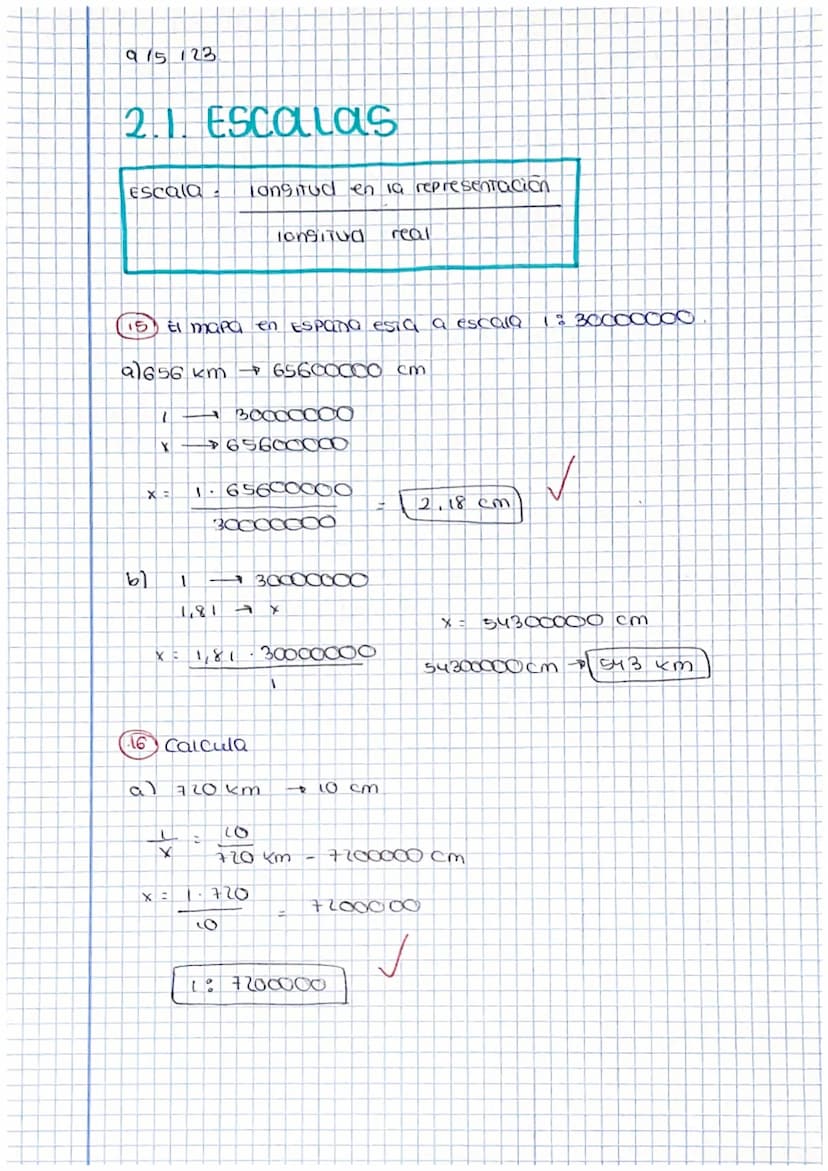 9/5/23
2.1. ESCALAS
Escala = longitud en la representación
longitud real
15 El mapa en España está a escala 1:30000000.
a) 656 km → 65600000 cm
1 → 30000000
x → 65600000
x = 1 · 65600000 = 2,18 cm ✓
30000000
b) 1 → 30000000
1,81 → x
x = 54300000 cm
x = 1,81 · 30000000
1
54300000 cm → 543 km
16 Calcula
a) 720 km → 10 cm
1 = 10
x 720 km - 7200000 cm
x = 1 · 720 = 7200000
10
1: 7200000 ✓